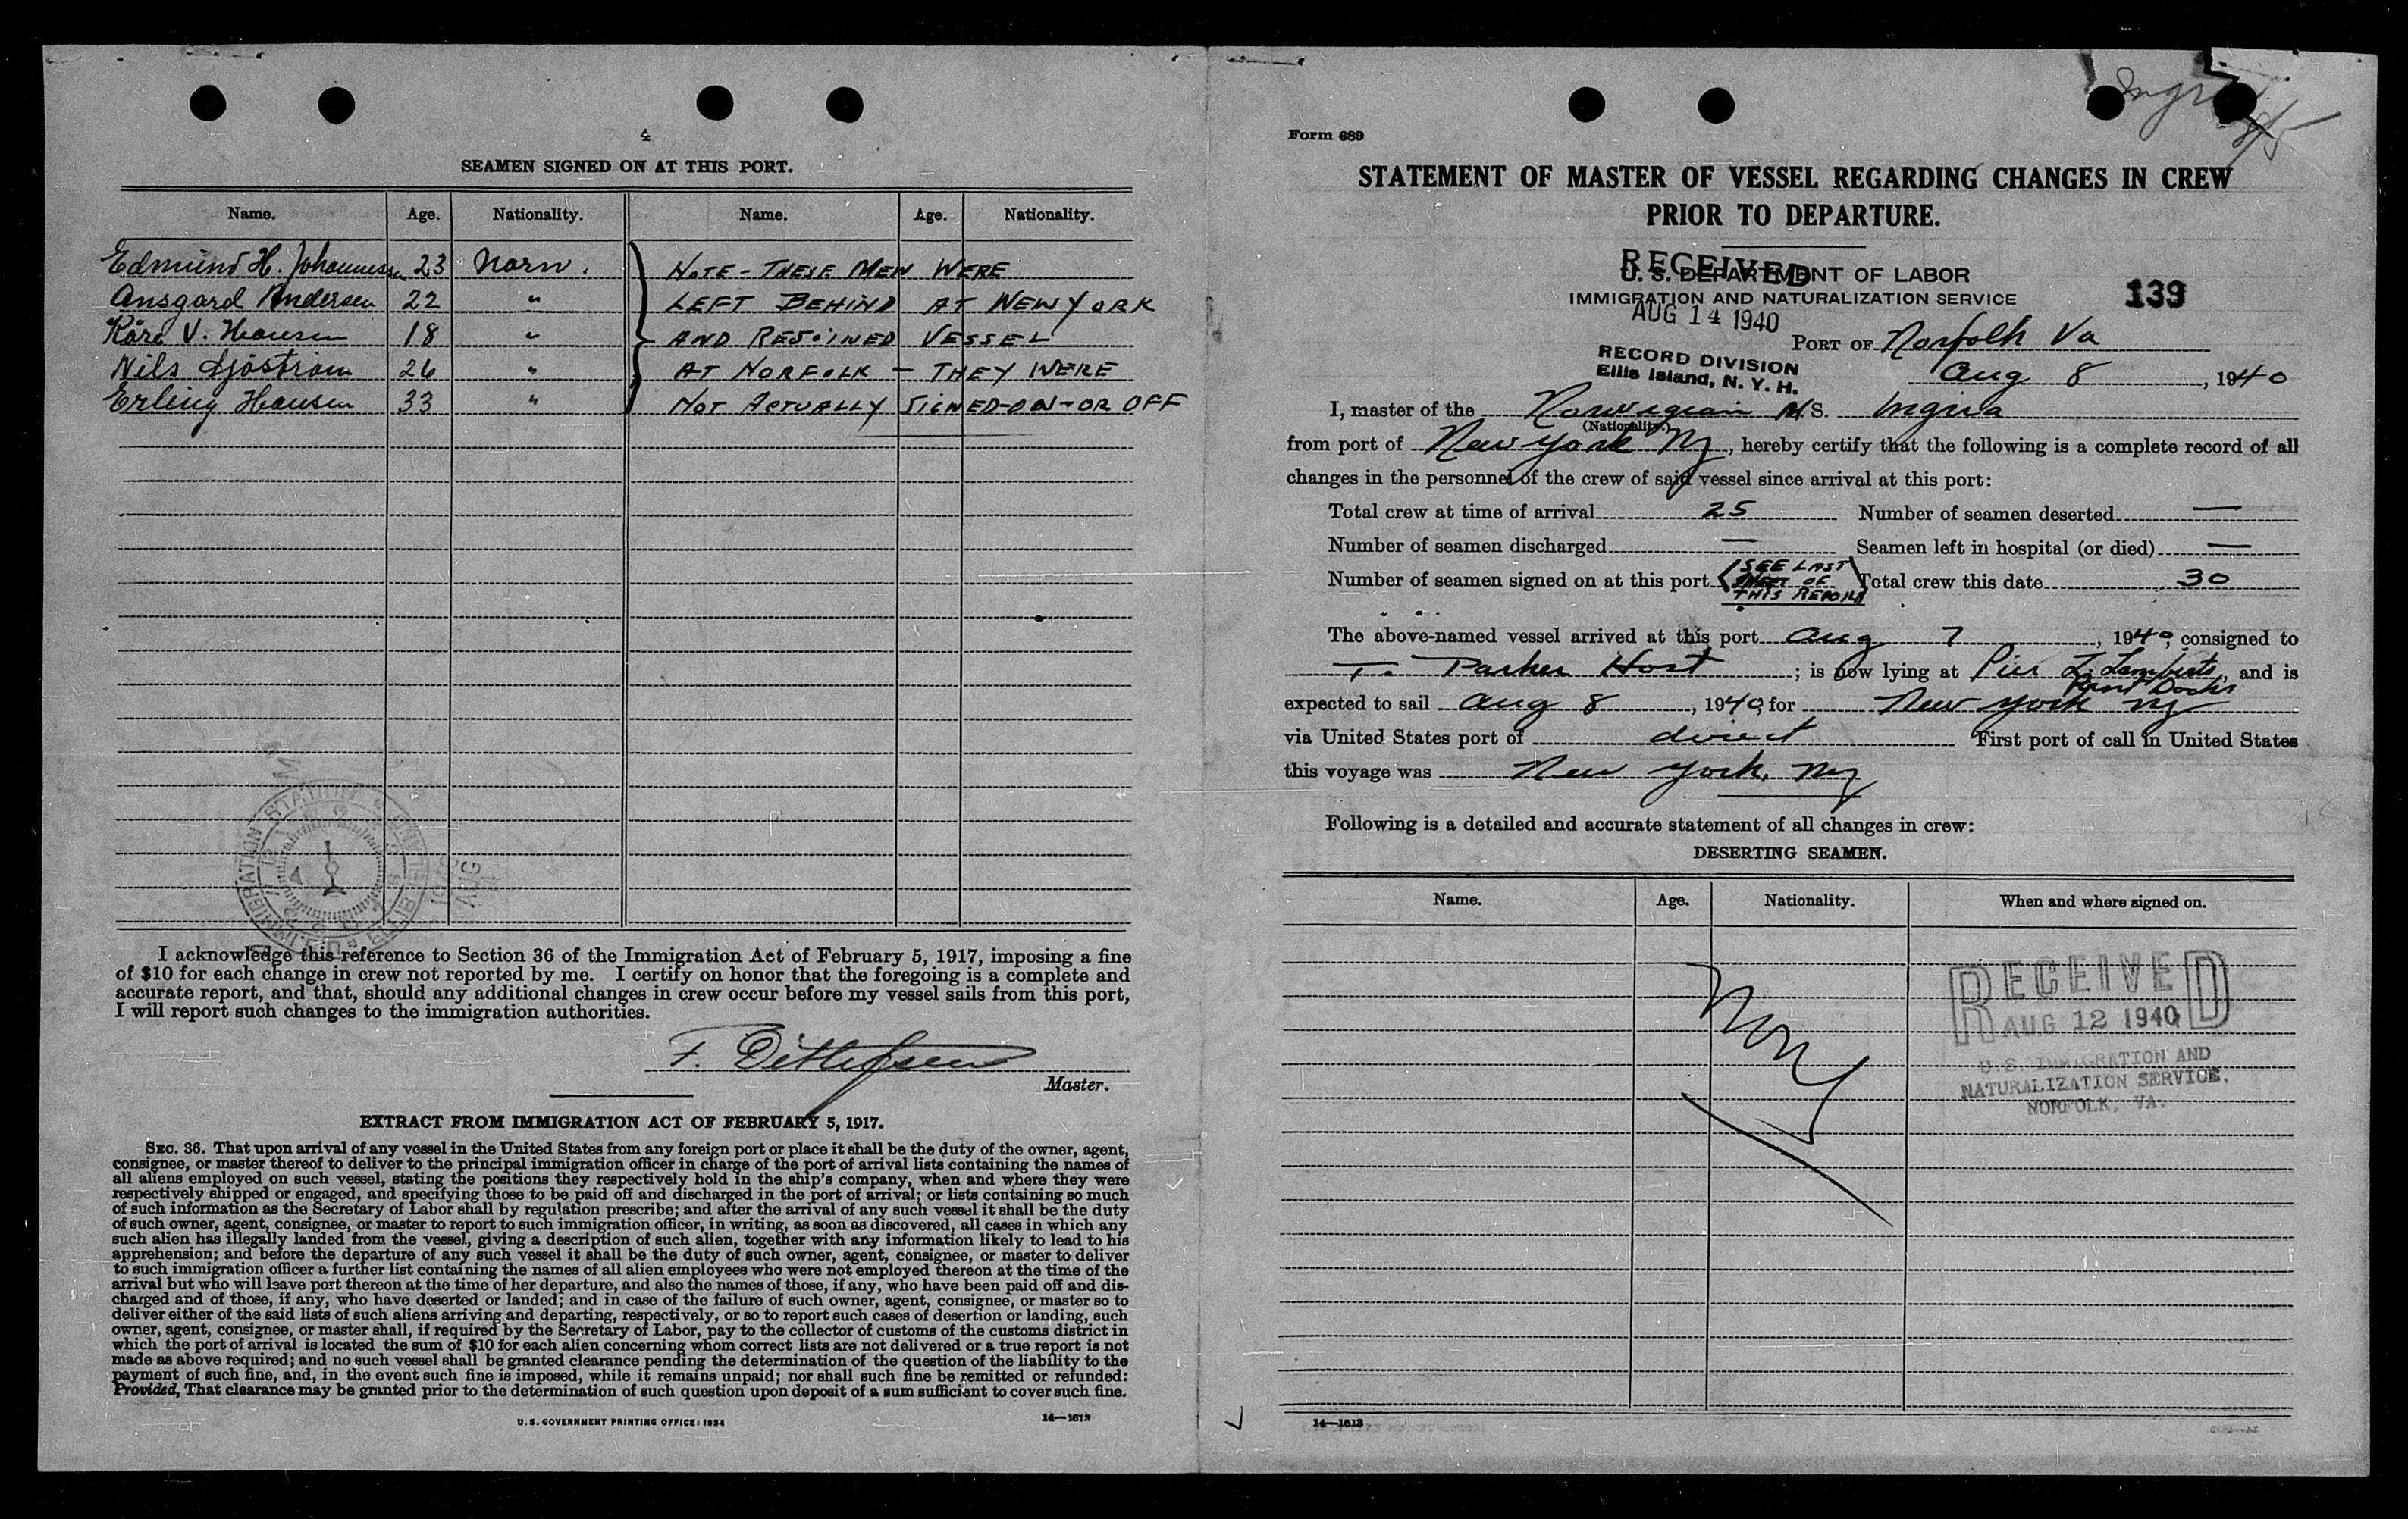 4
SEAMEN SIGNED ON AT THIS PORT.
Name. Age. Nationality. Name. Age. Nationality.
Edmund H. Johannessen 23 Norw. NOTE - THESE MEN WERE
Ansgard Andersen 22 " LEFT BEHIND AT NEW YORK
Kåre V. Hansen 18 " AND REJOINED VESSEL
Nils Sjöström 26 " AT NORFOLK - THEY WERE
Erling Hansen 33 " NOT ACTUALLY SIGNED-ON-OR OFF
I acknowledge this reference to Section 36 of the Immigration Act of February 5, 1917, imposing a fine
of $10 for each change in crew not reported by me. I certify on honor that the foregoing is a complete and
accurate report, and that, should any additional changes in crew occur before my vessel sails from this port,
I will report such changes to the immigration authorities.
F. Ditlefsen
Master.
EXTRACT FROM IMMIGRATION ACT OF FEBRUARY 5, 1917.
SEC. 36. That upon arrival of any vessel in the United States from any foreign port or place it shall be the duty of the owner, agent,
consignee, or master thereof to deliver to the principal immigration officer in charge of the port of arrival lists containing the names of
all aliens employed on such vessel, stating the positions they respectively hold in the ship's company, when and where they were
respectively shipped or engaged, and specifying those to be paid off and discharged in the port of arrival; or lists containing so much
of such information as the Secretary of Labor shall by regulation prescribe; and after the arrival of any such vessel it shall be the duty
of such owner, agent, consignee, or master to report to such immigration officer, in writing, as soon as discovered, all cases in which any
such alien has illegally landed from the vessel, giving a description of such alien, together with any information likely to lead to his
apprehension; and before the departure of any such vessel it shall be the duty of such owner, agent, consignee, or master to deliver
to such immigration officer a further list containing the names of all alien employees who were not employed thereon at the time of the
arrival but who will leave port thereon at the time of her departure, and also the names of those, if any, who have been paid off and dis-
charged and of those, if any, who have deserted or landed; and in case of the failure of such owner, agent, consignee, or master so to
deliver either of the said lists of such aliens arriving and departing, respectively, or so to report such cases of desertion or landing, such
owner, agent, consignee, or master shall, if required by the Secretary of Labor, pay to the collector of customs of the customs district in
which the port of arrival is located the sum of $10 for each alien concerning whom correct lists are not delivered or a true report is not
made as above required; and no such vessel shall be granted clearance pending the determination of the question of the liability to the
payment of such fine, and, in the event such fine is imposed, while it remains unpaid; nor shall such fine be remitted or refunded:
Provided, That clearance may be granted prior to the determination of such question upon deposit of a sum sufficient to cover such fine.
U. S. GOVERNMENT PRINTING OFFICE: 1934 14—1613
Form 689
STATEMENT OF MASTER OF VESSEL REGARDING CHANGES IN CREW
PRIOR TO DEPARTURE.
RECEIVED
U. S. DEPARTMENT OF LABOR
IMMIGRATION AND NATURALIZATION SERVICE 139
AUG 14 1940
PORT OF Norfolk Va
RECORD DIVISION
Ellis Island, N. Y. H.
Aug 8, 1940
I, master of the Norwegian M.S. Ingria
(Nationality.)
from port of New York NY, hereby certify that the following is a complete record of all
changes in the personnel of the crew of said vessel since arrival at this port:
Total crew at time of arrival 25 Number of seamen deserted —
Number of seamen discharged — Seamen left in hospital (or died) —
Number of seamen signed on at this port (SEE LAST SHEET OF THIS REPORT) Total crew this date 30
The above-named vessel arrived at this port Aug 7, 1940, consigned to
T. Parker Host; is now lying at Pier L Lamberts Point Docks, and is
expected to sail Aug 8, 1940, for New York NY
via United States port of direct First port of call in United States
this voyage was New York, NY
Following is a detailed and accurate statement of all changes in crew:
DESERTING SEAMEN.
Name. Age. Nationality. When and where signed on.
RECEIVED
AUG 12 1940
U. S. IMMIGRATION AND
NATURALIZATION SERVICE.
NORFOLK, VA.
14—1613